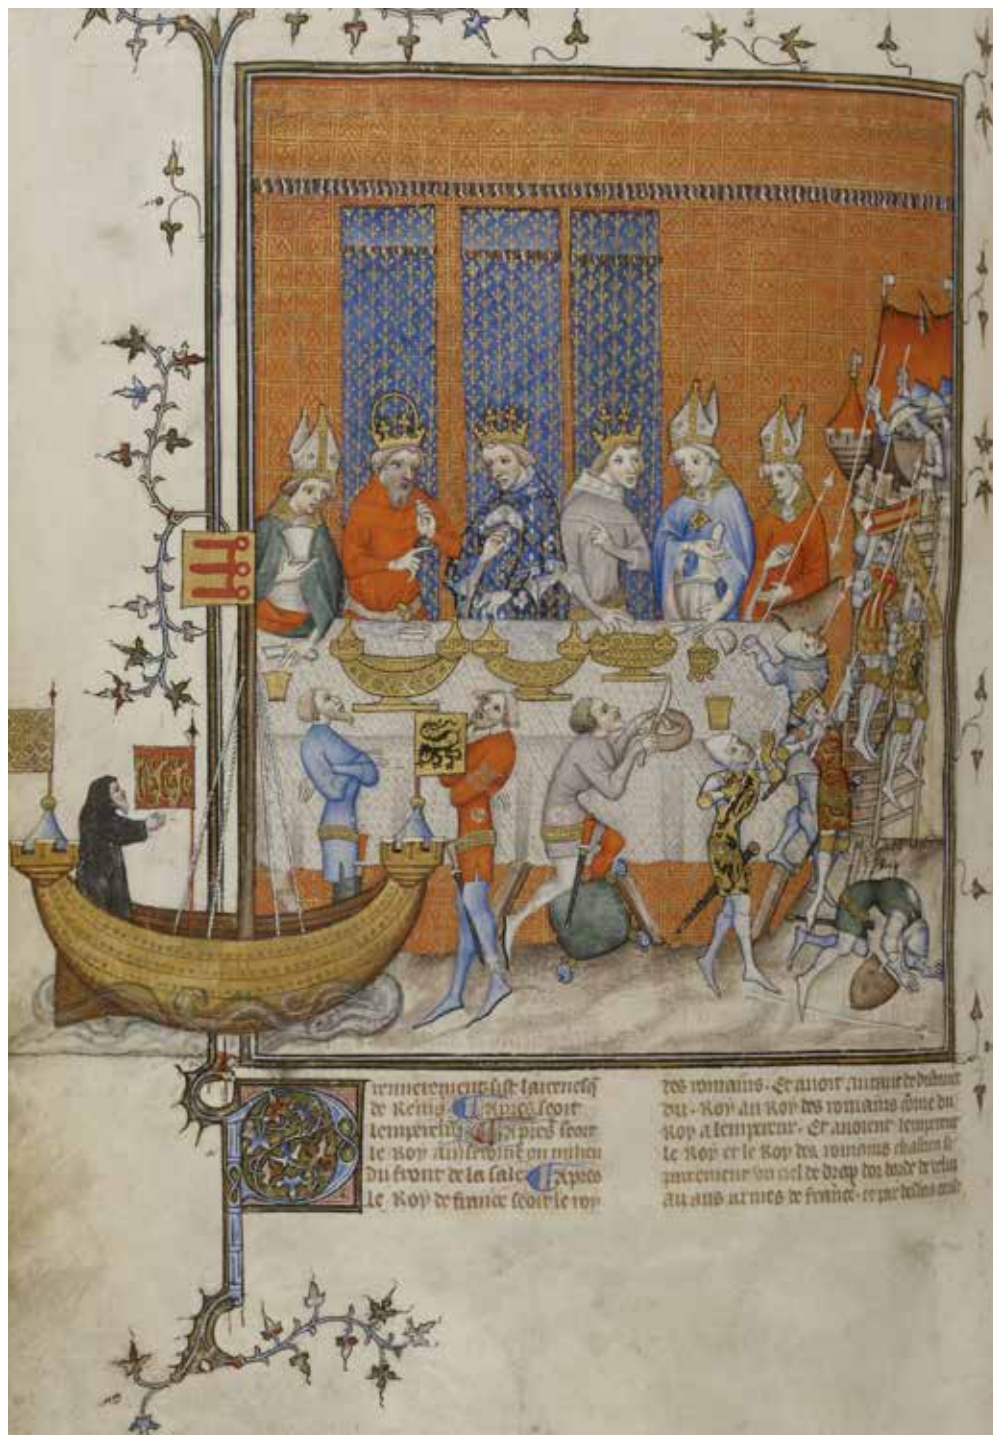 Premierement sist larcevesq
de Reins. Et apres seoit
lempereur. Et apres seoit
le Roy
du front de la sale Et apres
le Roy de france seoit le roy
des romains. Et avoit autant de distance
du Roy au Roy des romains côme du
Roy a lempereur. Et avoient lempereur
le Roy et le Roy des romains chascun
purement un ciel de drap dor borde de veluy
au aus armes de france. et par dessus